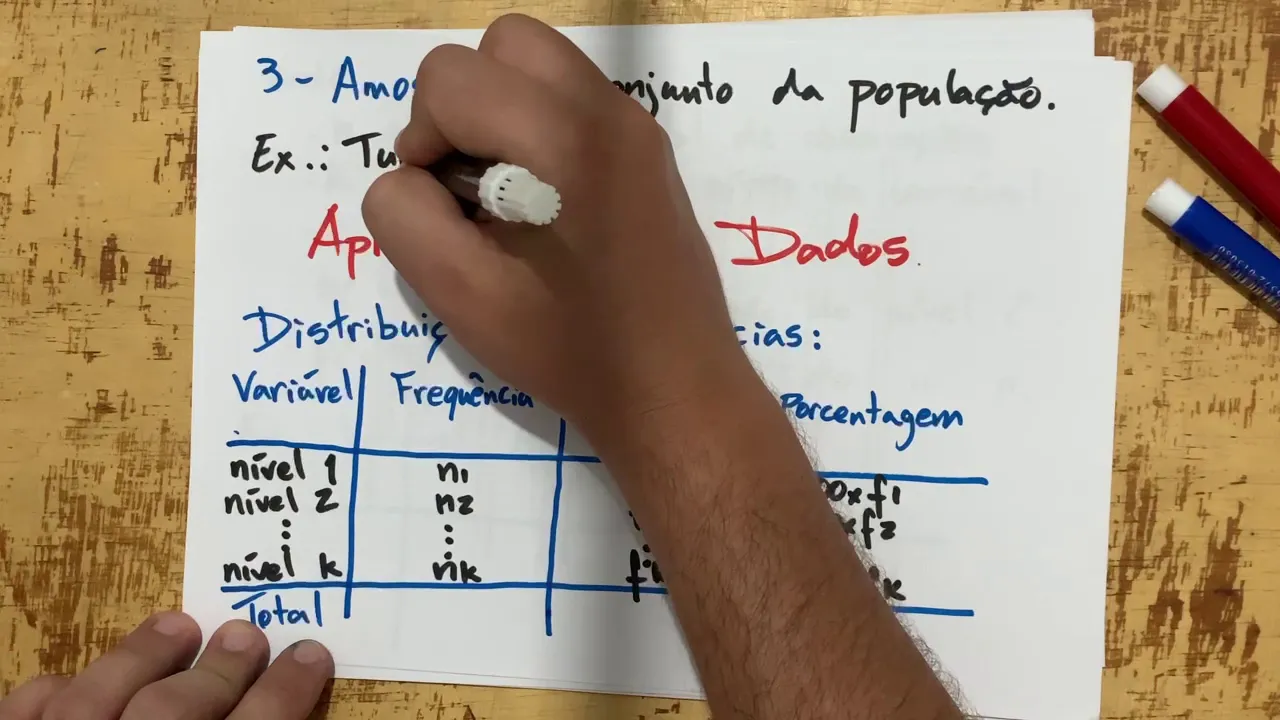 3 - Amos onjunto da população.
Ex.: Tu
Ap Dados.
Distribuiç cias:
Variável Frequência Porcentagem
nível 1 n1 0xf1
nível 2 n2 xf2
⋮ ⋮
nível k nk k
Total